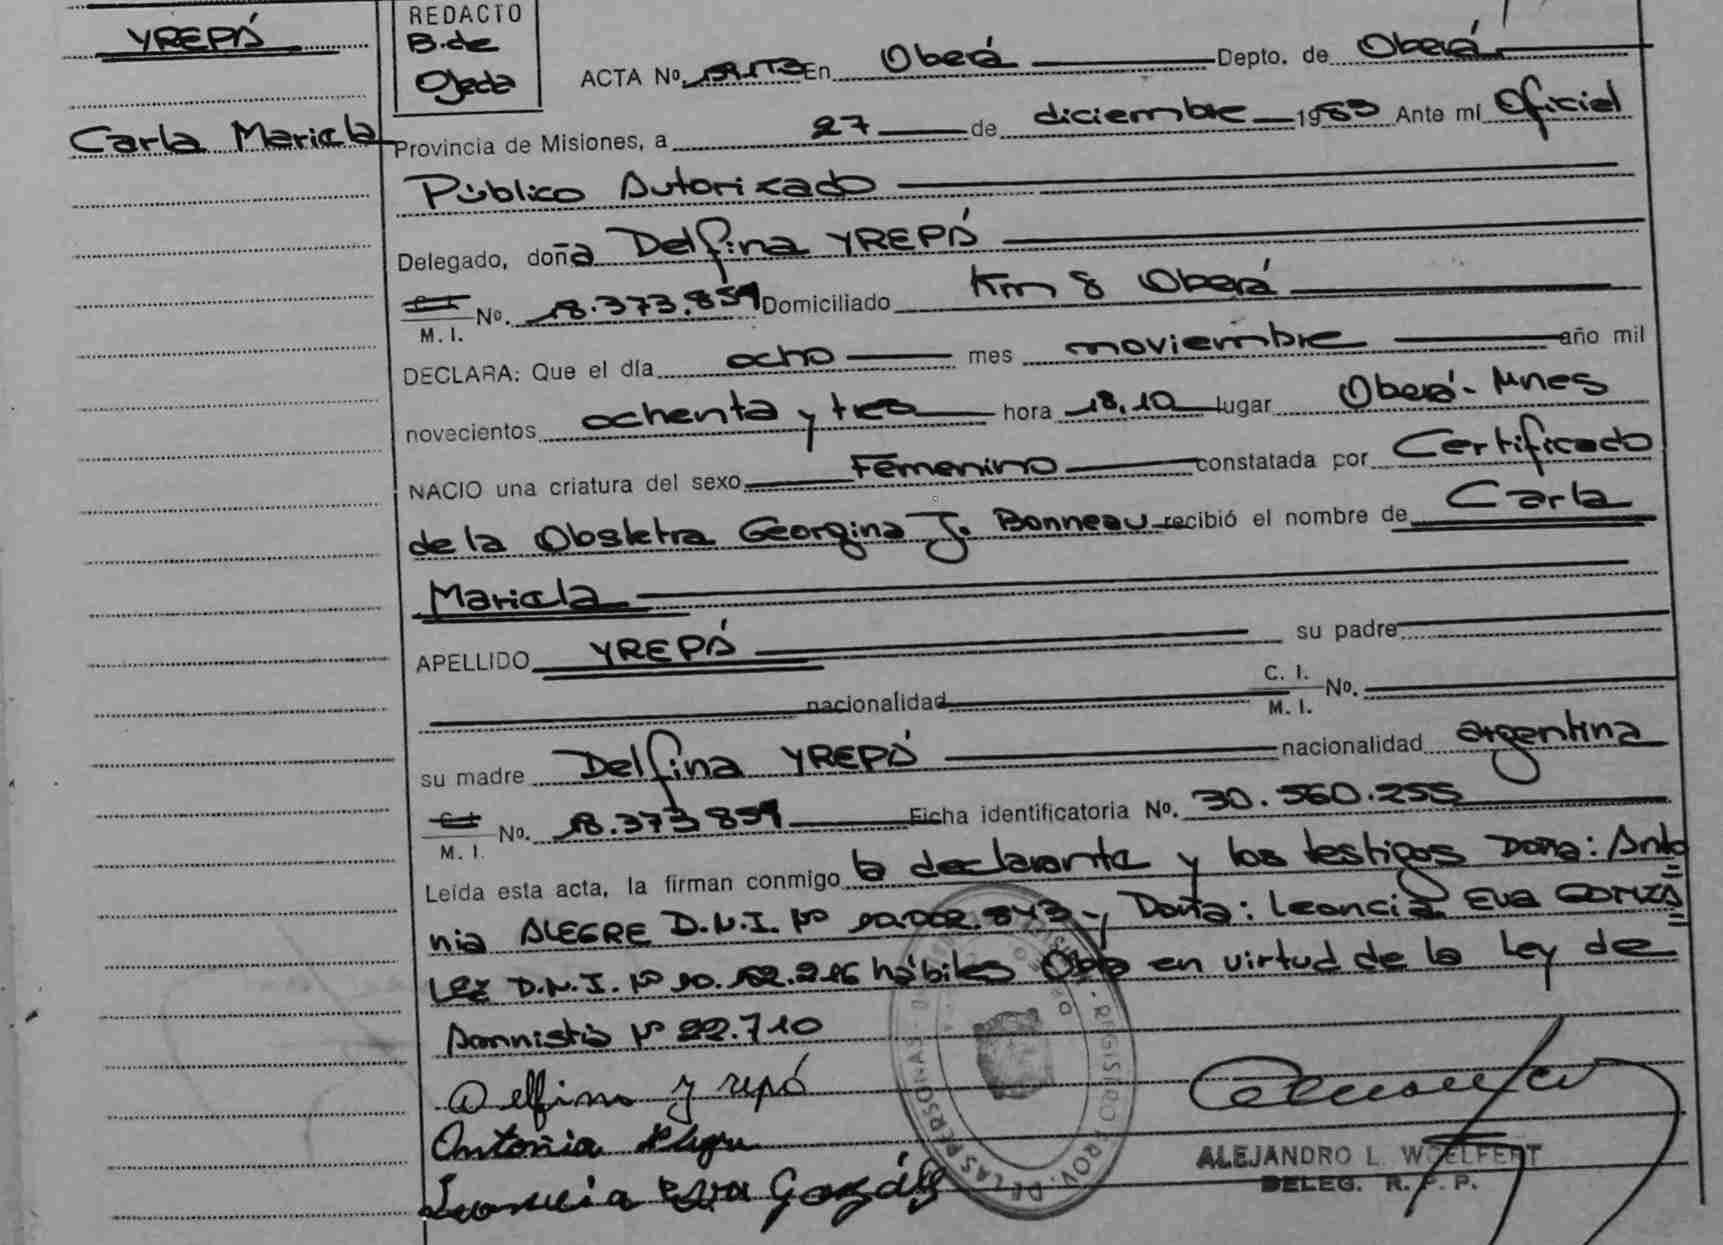 YREPÁ
Carla Mariela
REDACTO
B. de
Ojeda
ACTA Nº En Oberá Depto. de Oberá
Provincia de Misiones, a 27 de diciembre 1983 Ante mi Oficial
Público Autorizado
Delegado, doña Delfina YREPÁ
C. I. M. I. Nº. 18.373.859 Domiciliado Km 8 Oberá
DECLARA: Que el día ocho mes noviembre año mil
novecientos ochenta y tres hora 18,10 lugar Oberá - Mnes
NACIO una criatura del sexo Femenino constatada por Certificado
de la Obstetra Georgina J. Bonneau recibió el nombre de Carla
Mariela
APELLIDO YREPÁ su padre
nacionalidad C. I. M. I. Nº.
su madre Delfina YREPÁ nacionalidad argentina
C. I. M. I. Nº. 18.373.859 Ficha identificatoria Nº. 30.560.255
Leída esta acta, la firman conmigo la declarante y los testigos Doña: Anto
nia ALEGRE D.N.I. Nº 10.002.843 y Doña: Leoncia Eva GONZA
LEZ D.N.I. Nº hábiles en virtud de la Ley de
Amnistía Nº 22.710
Delfina Yrepá
Antonia Alegre
Leoncia Eva González
REGISTRO PROV. DE LAS PERSONAS
ALEJANDRO L. WOELFERT
DELEG. R. P. P.